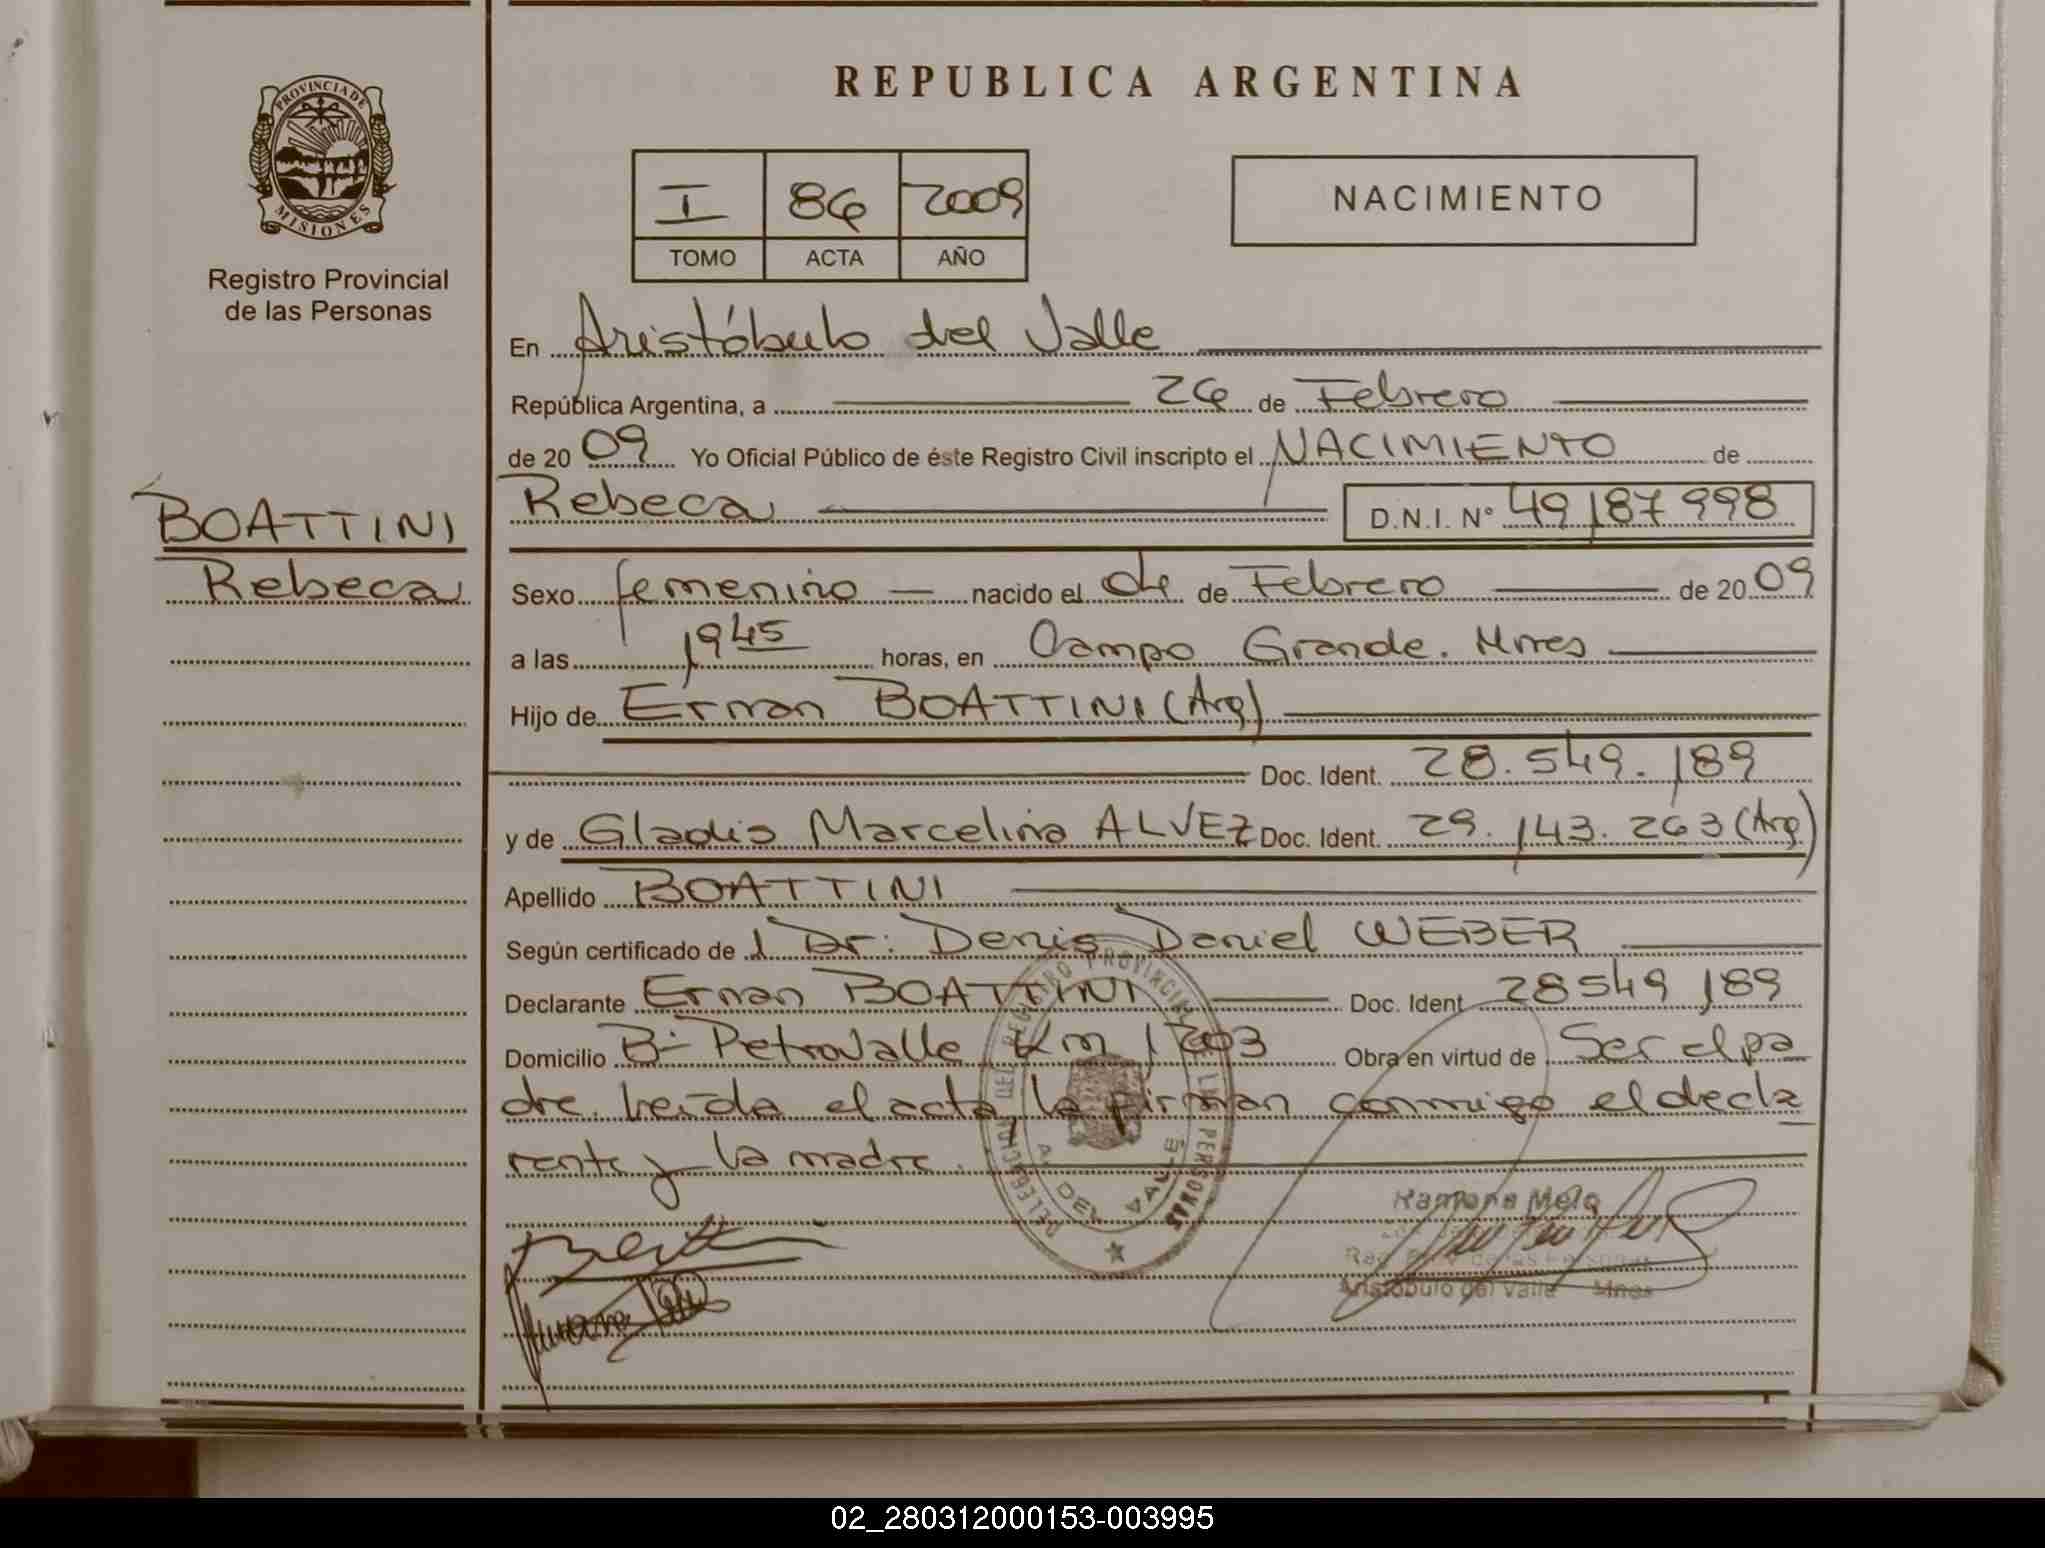 REPUBLICA ARGENTINA
PROVINCIA DE
MISIONES
Registro Provincial
de las Personas
I 86 2009
TOMO ACTA AÑO
NACIMIENTO
En Aristóbulo del Valle
República Argentina, a 26 de Febrero
de 2009 Yo Oficial Público de éste Registro Civil inscripto el NACIMIENTO de
BOATTINI
Rebeca
Rebeca D.N.I. N° 49187998
Sexo femenino nacido el 04 de Febrero de 2009
a las 1945 horas, en Campo Grande. Mnes
Hijo de Ernan BOATTINI (Arg)
Doc. Ident. 28.549.189
y de Gladis Marcelina ALVEZ Doc. Ident. 29.143.263 (Arg)
Apellido BOATTINI
Según certificado de l Dr: Denis Daniel WEBER
Declarante Ernan BOATTINI Doc. Ident 28549189
Domicilio B- Petrovalle Km 1203 Obra en virtud de Ser el pa
dre. Leída el acta, la firman conmigo el decla
rante y la madre.
DELEGACION DEL REGISTRO PROVINCIAL DE LAS PERSONAS
A. DEL VALLE
Ramona Melo
Aristóbulo del Valle Mnes
02_280312000153-003995